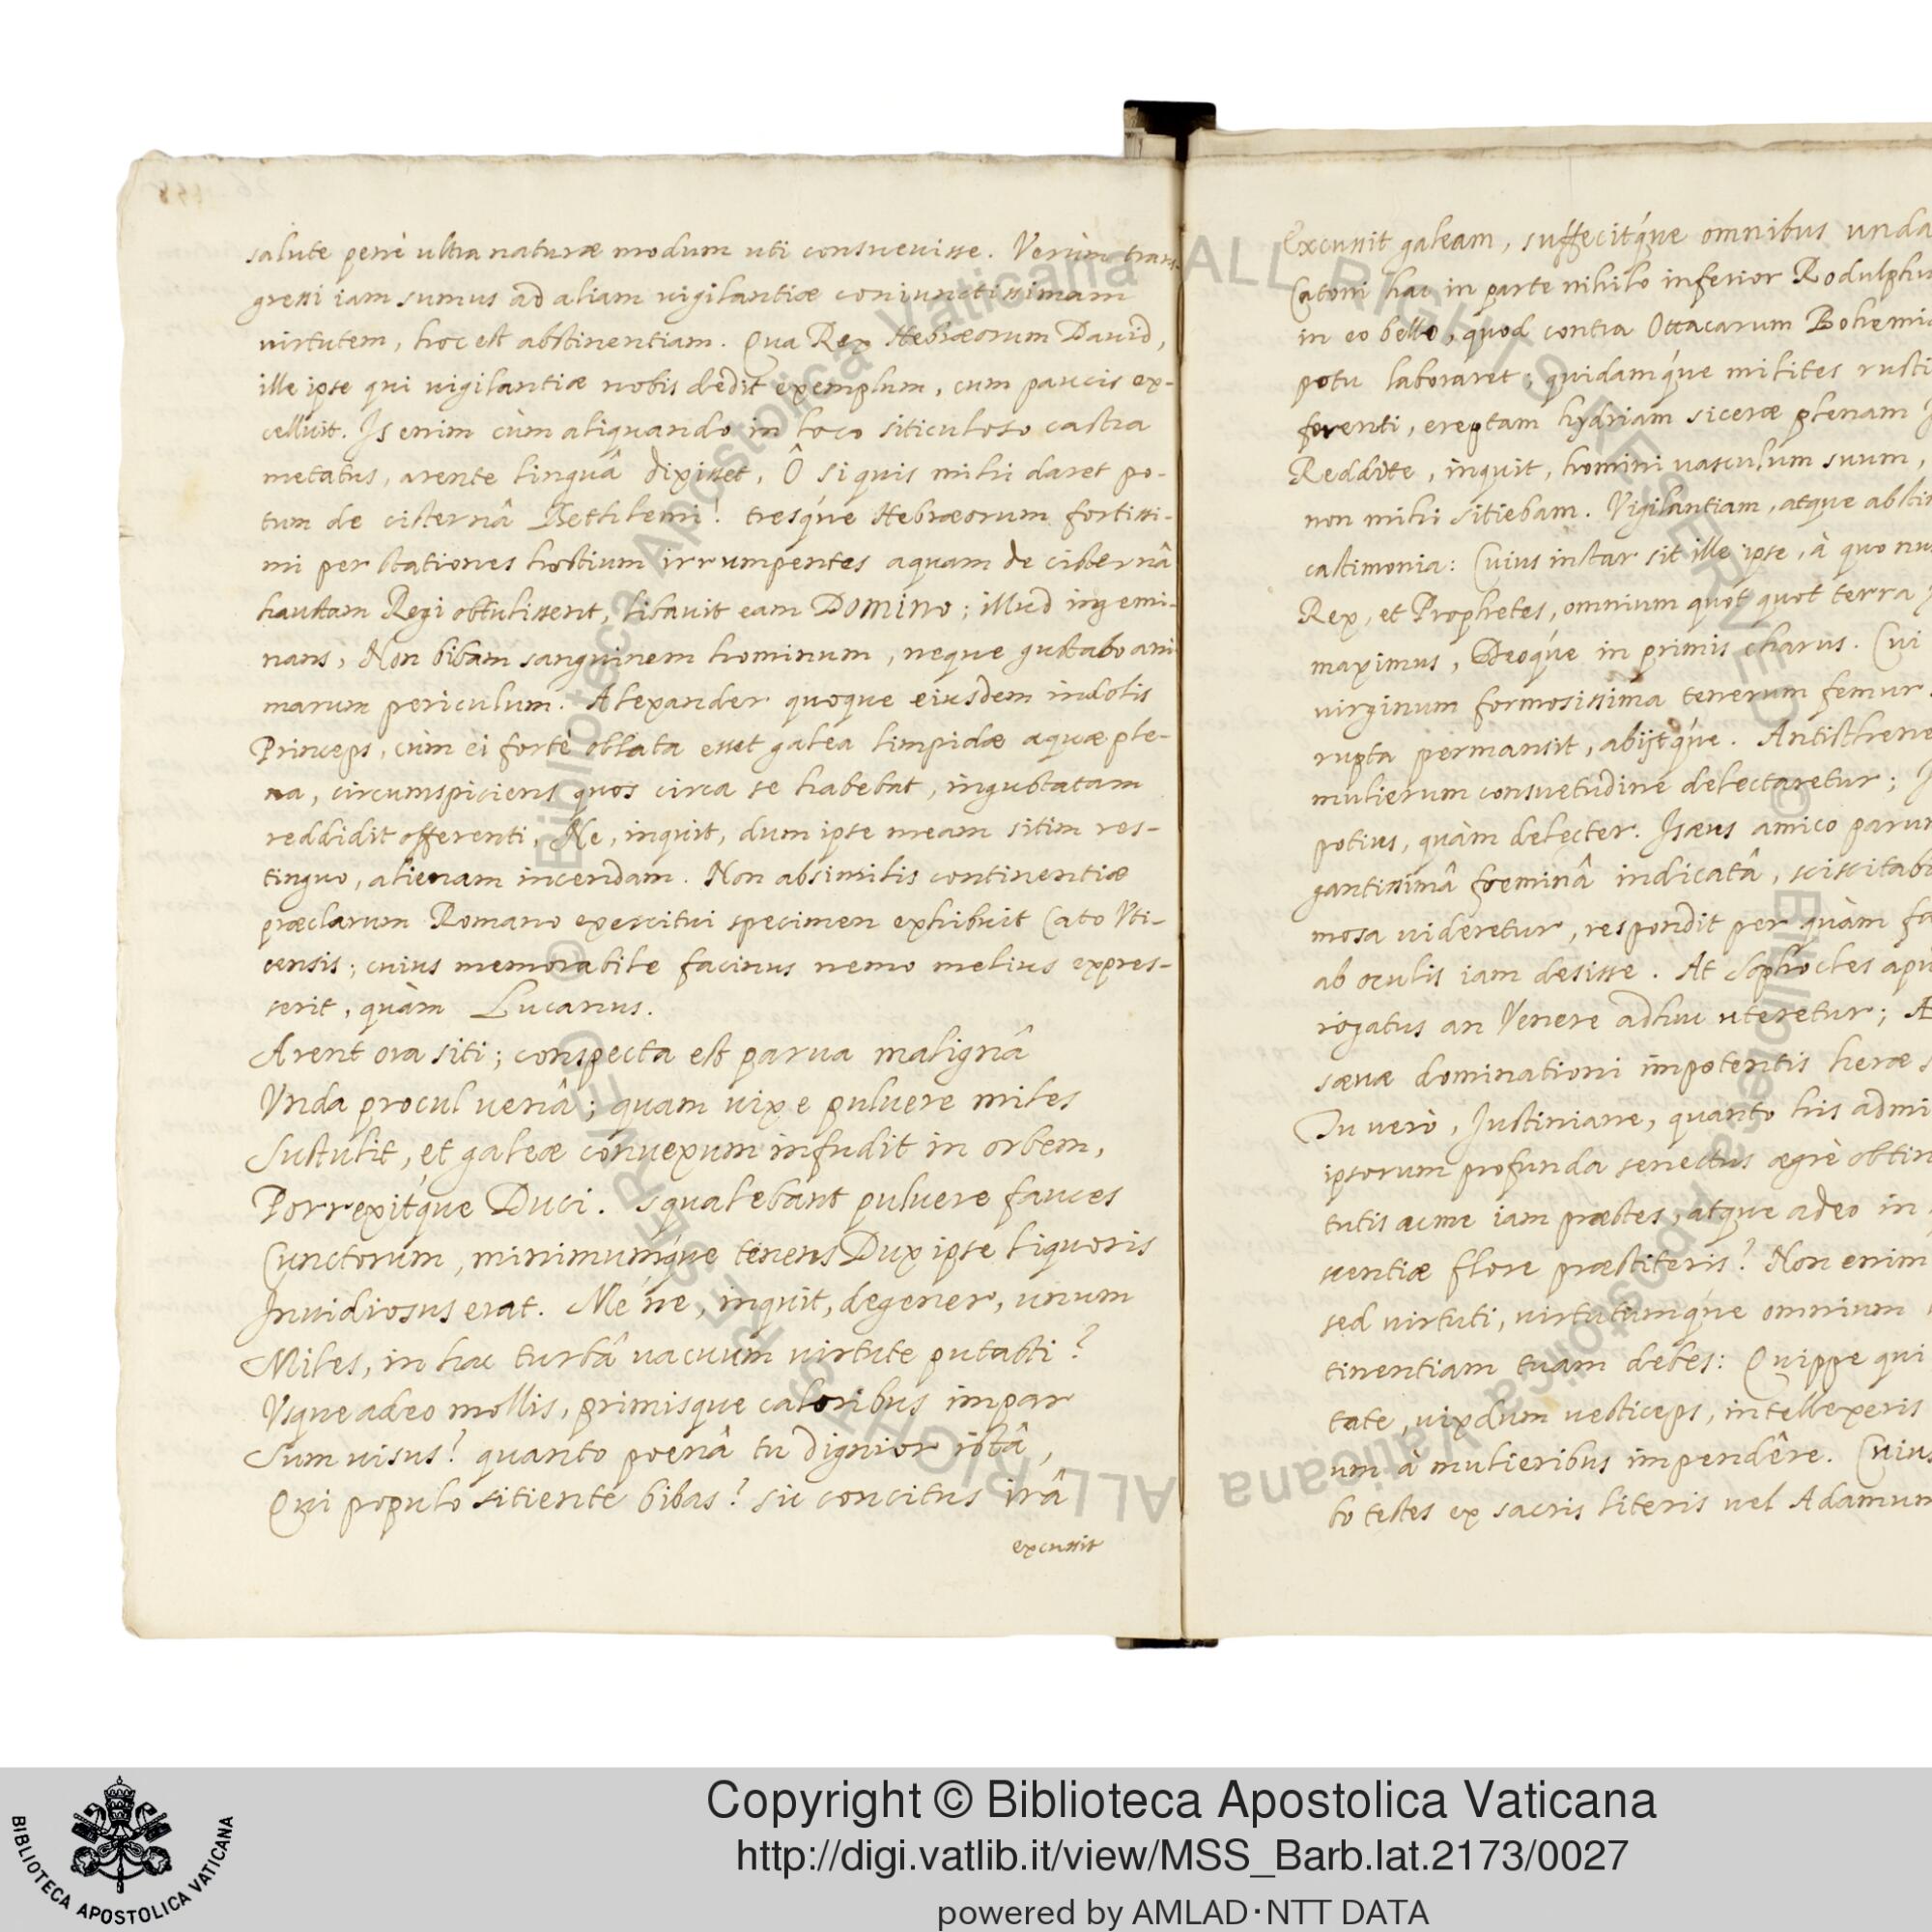 salute penè ultra naturæ modum uti consuevisse. Verùm trans-
gressi iam sumus ad aliam vigilantiæ coniunctissimam
virtutem, hoc est abstinentiam. Qua Rex Hebræorum David,
ille ipse qui vigilantiæ nobis dedit exemplum, cum paucis ex-
celluit. Is enim cùm aliquando in loco siticuloso castra
metatus, arente linguâ dixisset, Ô si quis mihi daret po-
tum de cisternâ Bethlemi! tresq́ue Hebræorum fortissi-
mi per stationes hostium irrumpentes aquam de cisternâ
haustam Regi obtulissent, libavit eam DOMINO; illud ingemi-
nans, Non bibam sanguinem hominum, neque gustabo ani-
marum periculum. Alexander quoque eiusdem indolis
Princeps, cùm ei fortè oblata esset galea limpidæ aquæ ple-
na, circumspiciens quos circa se habebat, ingustatam
reddidit offerenti, Ne, inquit, dum ipse meam sitim res-
tinguo, alienam incendam. Non absimilis continentiæ
præclarum Romano exercitui specimen exhibuit Cato Vti-
censis; cuius memorabile facinus nemo melius expres-
serit, quàm Lucanus.
Arent ora siti; conspecta est parva malignâ
Vnda procul venâ; quam vix e puluere miles
Sustulit, et galeæ convexum infudit in orbem,
Porrexitq́ue Duci. squalebant puluere fauces
Cunctorum, minimumq́ue tenens Dux ipse liquoris
Invidiosus erat. Me ne, inquit, degener, unum
Miles, in hac turbâ vacuum virtute putasti?
Vsque adeo mollis, primisque caloribus impar
Sum visus? quanto poenâ tu dignior istâ,
Qui populo sitiente bibas? sic concitus irâ
excussit
Excussit galeam, suffecitq́ue omnibus unda
Catoni hac in parte nihilo inferior Rodulphu
in eo bello, quod contra Ottacarum Bohemi
potu laboraret; quidamq́ue milites rusti
ferenti, ereptam hydriam siceræ plenam I
Reddite, inquit, homini vasculum suum,
non mihi sitiebam. Vigilantiam, atque absti
castimonia: Cuius instar sit ille ipse, à quo nu
Rex, et Prophetes, omnium quot quot terra
maximus, Deoq́ue in primis charus. Cui
virginum formosissima tenerum femur
rupta permansit, abijtq́ue. Antisthene
mulierum consuetudine delectaretur; I
potius, quàm delecter. Isæus amico paru
gantissimâ foeminâ indicatâ, sciscitab
mosa videretur, respondit per quàm fa
ab oculis iam desisse. At Sophocles apu
rogatus an Venere adhuc uteretur; A
sævæ dominationi impotentis heræ s
Tu verò, Justiniane, quanto his admi
ipsorum profunda senectus ægrè obtin
tutis acme iam præstes, atque adeo in
scentiæ flore præstiteris? Non enim
sed virtuti, virtutumq́ue omnium
tinentiam tuam debes: Quippe qui
tate, vixdum vesticeps, intellexeris
um à mulieribus impendêre. Cuius
lo testes ex sacris literis vel Adamum
© Biblioteca Apostolica Vaticana ALL RIGHTS RESERVED
© Biblioteca Apostolica Vaticana ALL RIGHTS RESERVED
BIBLIOTECA APOSTOLICA VATICANA
Copyright © Biblioteca Apostolica Vaticana
http://digi.vatlib.it/view/MSS_Barb.lat.2173/0027
powered by AMLAD·NTT DATA